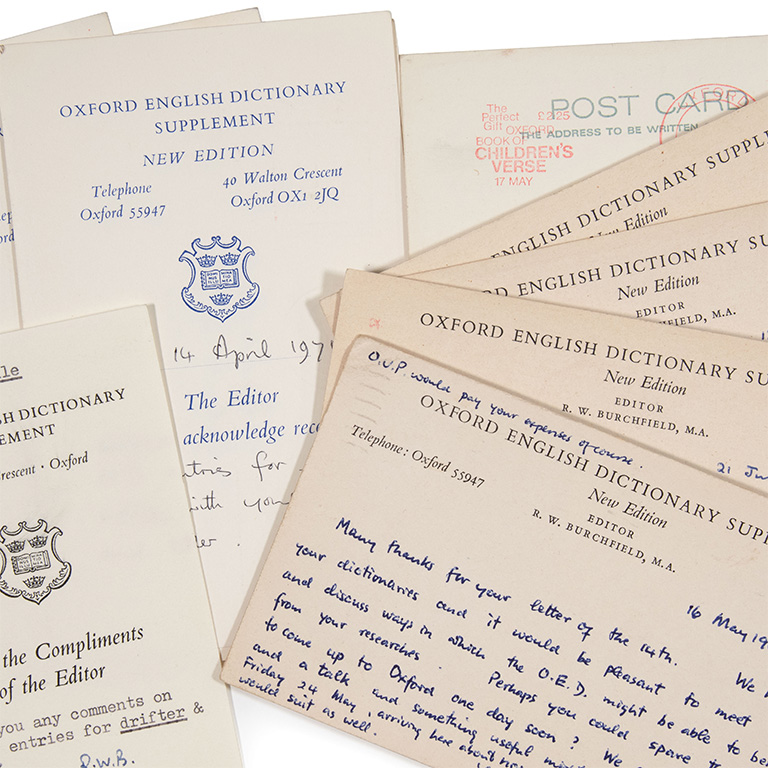 OXFORD ENGLISH DICTIONARY
SUPPLEMENT
NEW EDITION
Telephone
Oxford 55947
40 Walton Crescent
Oxford OX1 2JQ
14 April 197
The Editor
acknowledge rec
ntries for
with your
POST CARD
THE ADDRESS TO BE WRITTEN
The
Perfect £2.25
Gift OXFORD
BOOK OF
CHILDREN'S
VERSE
17 MAY
ENGLISH DICTIONARY SUPPLE
New Edition
ENGLISH DICTIONARY SU
New Edition
EDITOR
BURCHFIELD, M.A.
OXFORD ENGLISH DICTIONARY SU
New Edition
EDITOR
R. W. BURCHFIELD, M.A.
21 Ju
O.U.P. would pay your expenses of course.
OXFORD ENGLISH DICTIONARY SUPP
Telephone: Oxford 55947
New Edition
EDITOR
R. W. BURCHFIELD, M.A.
16 May 19
Many thanks for your letter of the 14th. We
your dictionaries and it would be pleasant to meet
and discuss ways in which the O.E.D. might be able to be
from your researches. Perhaps you could spare
to come up to Oxford one day soon? We
and a talk and something useful
Friday 24 May, arriving here about
would suit as well.
SH DICTIONARY
EMENT
rescent · Oxford
the Compliments
of the Editor
you any comments on
entries for drifter &
R.W.B.